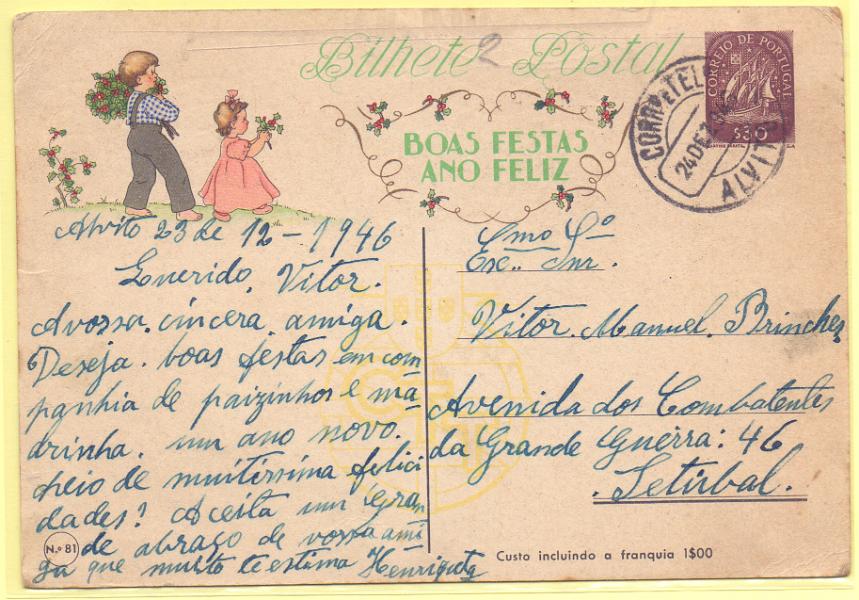 Bilhete Postal
2
BOAS FESTAS
ANO FELIZ
CORREIO DE PORTUGAL
$30
24 DEZ
ALVITO
Alvito 23 de 12-1946
Querido. Vitor.
A vossa. cincera. amiga.
Deseja. boas festas em com
panhia de paizinhos e ma
drinha. um ano novo.
cheio de muitissima felici
dades! Aceita um gran
de abraço de vossa ami
ga que muito te estima Henriqueta
Exmo Snr.
Vitor. Manuel. Brinches
Avenida dos Combatentes
da Grande Guerra: 46
. Setubal.
N.º 81
Custo incluindo a franquia 1$00